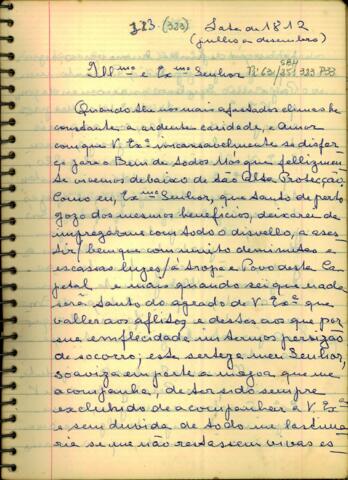 323 (323) Lata de 1812
(julho a dezembro)
Illmo e Exmo Senhor
Quando the nos mais afastados climas he
constante a ardente caridade, e Amor
com que V. Exª incansavelmente se disfor
ça para o Bem de todos Nos que fellizmen
te vivemos debaixo de tão Alta Protecção:
Como eu, Exmo Senhor, que tanto de perto
gozo dos mesmos beneficios, deixarei de
impregarme com todo o disvello, a asses
tir/ bem que com muito deminutas e
escassas luzes/ á tropa e Povo desta Ca
petal e mais quando sei que nada
será tanto do agrado de V. Exª que
valler aos aflitos e destes aos que por
sua emfilecidade in termos persizão
de socorro; esta serteza meu Senhor,
soaviza em parte a mágoa que me
acompanha, de ter sido sempre
excluhido de acompanhar a V. Exª
e sem duvida de todo me lastima
ria se me não restassem vivas es